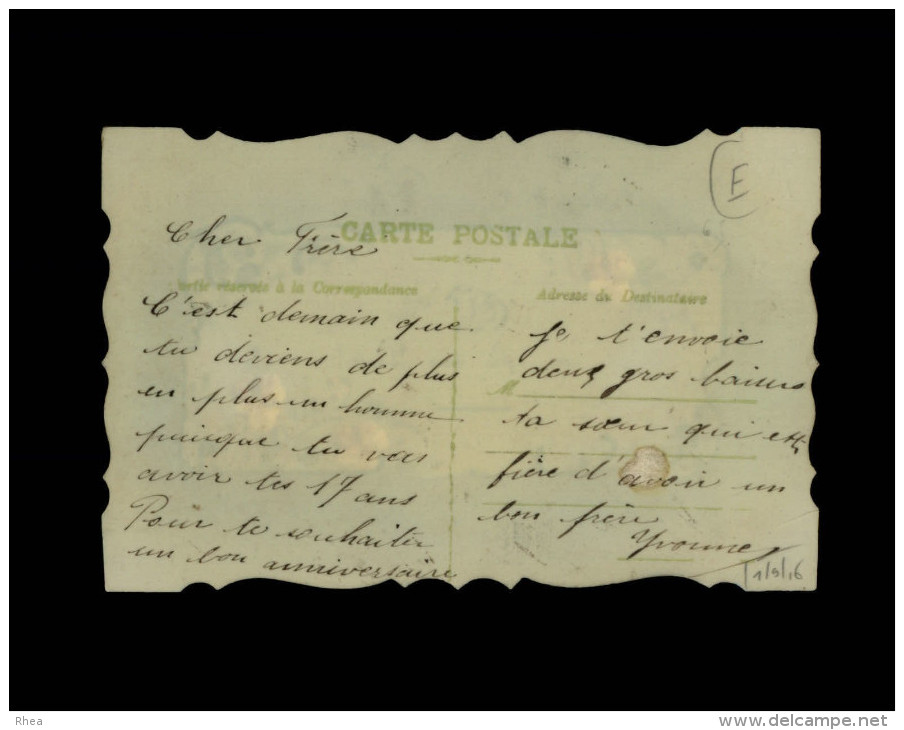 E
CARTE POSTALE
Cher Frère
Partie réservée à la Correspondance
C'est demain que
tu deviens de plus
en plus un homme
puisque tu vas
avoir tes 17 ans
Pour te souhaiter
un bon anniversaire
Adresse du Destinataire
je t'envoie
deux gros baisers
ta sœur qui est
fière d'avoir un
bon frère
Yvonne
1/9/16
Rhea
www.delcampe.net